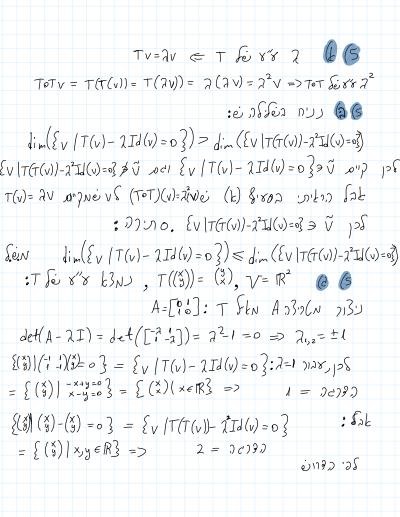 5) א) λ ע"ע של T ⇐ Tv=λv
ToTv = T(T(v)) = T(λv) = λ(λv) = λ²v => ToT ע"ע של λ²
5) ב) נניח בשלילה ש:
dim({v|T(v)-λId(v)=0}) > dim({v|T(T(v))-λ²Id(v)=0})
לכן קיים ṽ∈{v|T(v)-λId(v)=0} וגם ṽ∉{v|T(T(v))-λ²Id(v)=0}
אבל הראיתי בסעיף (א) ש (ToT)(v)=λ²v לכל v שמקיים T(v)=λv
לכן ṽ∈{v|T(T(v))-λ²Id(v)=0}. סתירה:
dim({v|T(v)-λId(v)=0}) ≤ dim({v|T(T(v))-λ²Id(v)=0}) משל
5) V=ℝ², T((x y))=(y x), נמצא ע"ע של T:
ניצור מטריצה A מאל T: A=[0 1 1 0]
det(A-λI) = det([-λ 1 1 -λ]) = λ²-1=0 => λ₁,₂=±1
לכן עבור λ=1: {v|T(v)-λId(v)=0} = {(x y)|(-1 1 1 -1)(x y)=0}
= {(x y)|-x+y=0 x-y=0} = {(x x)|x∈ℝ} => 1 =
אבל: {v|T(T(v))-λ²Id(v)=0} = {(x y)|(x y)-(x y)=0}
= {(x y)|x,y∈ℝ} => 2 =